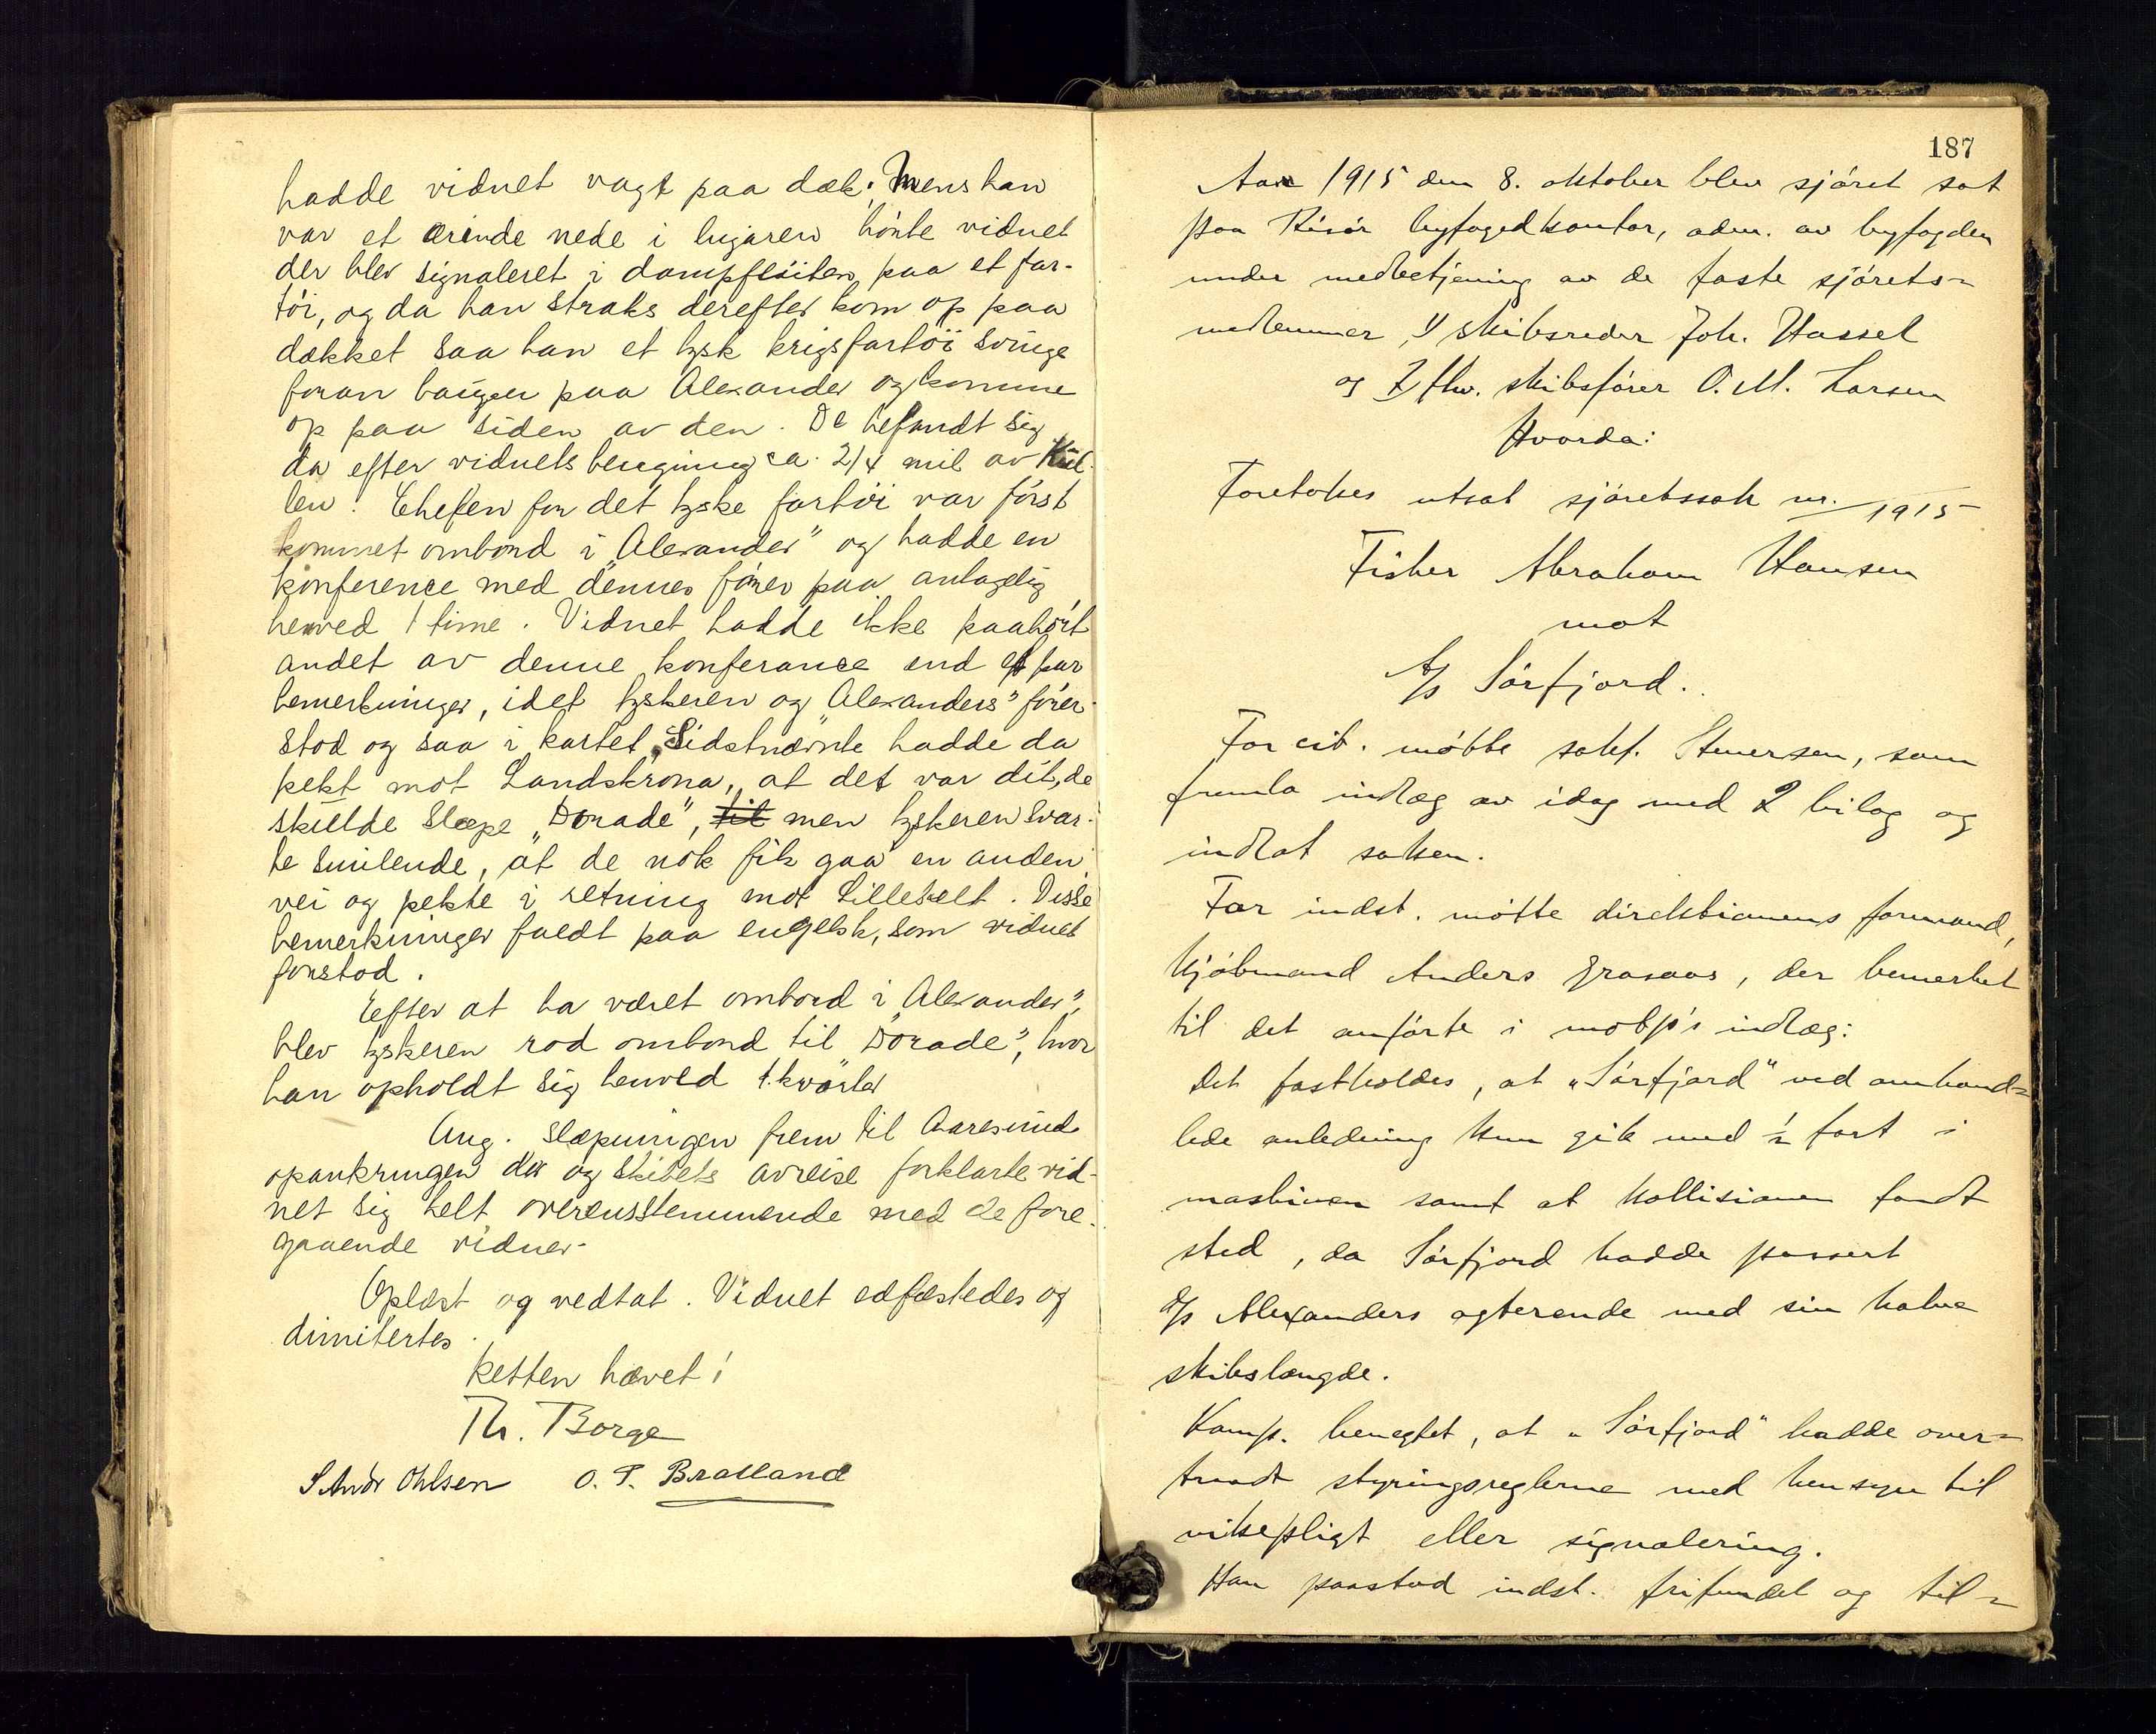 hadde vidnet vagt paa dæk. Mens han
var et ærinde nede i lugaren hørte vidnet
der blev signaleret i dampfløiten paa et far-
tøi, og da han straks derefter kom op paa
dækket saa han et tysk krigsfartøi svinge
foran baugen paa Alexander og komme
op paa siden av den. De befandt sig
da efter vidnets beregning ca. 2/4 mil av Kul-
len. Chefen for det tyske fartøi var først
kommet ombord i "Alexander" og hadde en
konference med dennes fører paa antagelig
henved 1 time. Vidnet hadde ikke paahørt
andet av denne konferance end et par
bemerkninger, idet tyskeren og "Alexanders" fører
stod og saa i kartet. Sidstnævnte hadde da
pekt mot Landskrona, at det var dit, de
skulde slæpe "Dorade", til men tyskeren svar-
te smilende, at de nok fik gaa en anden
vei og pekte i retning mot Lillebelt. Disse
bemerkninger faldt paa engelsk, som vidnet
forstod.
Efter at ha været ombord i "Alexander",
blev tyskeren rod ombord til "Dorade", hvor
han opholdt sig henved 1. kvarter
Ang. slæpningen frem til Aaresund
opankringen der og skibets avreise forklarte vid-
net sig helt overensstemmende med de fore-
gaaende vidner.
Oplæst og vedtat. Vidnet edfæstedes og
dimitertes.
Retten hævet
Th. Borge
S. Andr Ohlsen O. T. Bratland
187
Aar 1915 den 8. oktober blev sjøret sat
paa Risør byfogedkontor, adm. av byfogden
under medbetjening av de faste sjørets-
medlemmer, 1) skibsreder Joh. Hassel
og 2) fhv. skibsfører O. M. Larsen
Hvorda:
Foretokes utsat sjøretssak nr. /1915
Fisker Abraham Hansen
mot
A/S Sørfjord.
For cit. møtte sakf. Stenersen, som
fremla indlæg av idag med 2 bilag og
indlot saken.
For indst. møtte direktionens formand,
kjøbmand Anders Grasaas, der bemerket
til det anførte i motp's indlæg:
Det fastholdes, at "Sørfjord" ved omhand-
lede anledning kun gik med ½ fart i
maskinen samt at kollisionen fandt
sted, da Sørfjord hadde passert
d/s Alexanders agterende med sin halve
skibslængde.
Komp. benegtet, at "Sørfjord" hadde over-
traadt styringsreglerne med hensyn til
vikepligt eller signalering.
Han paastod indst. frifundet og til-